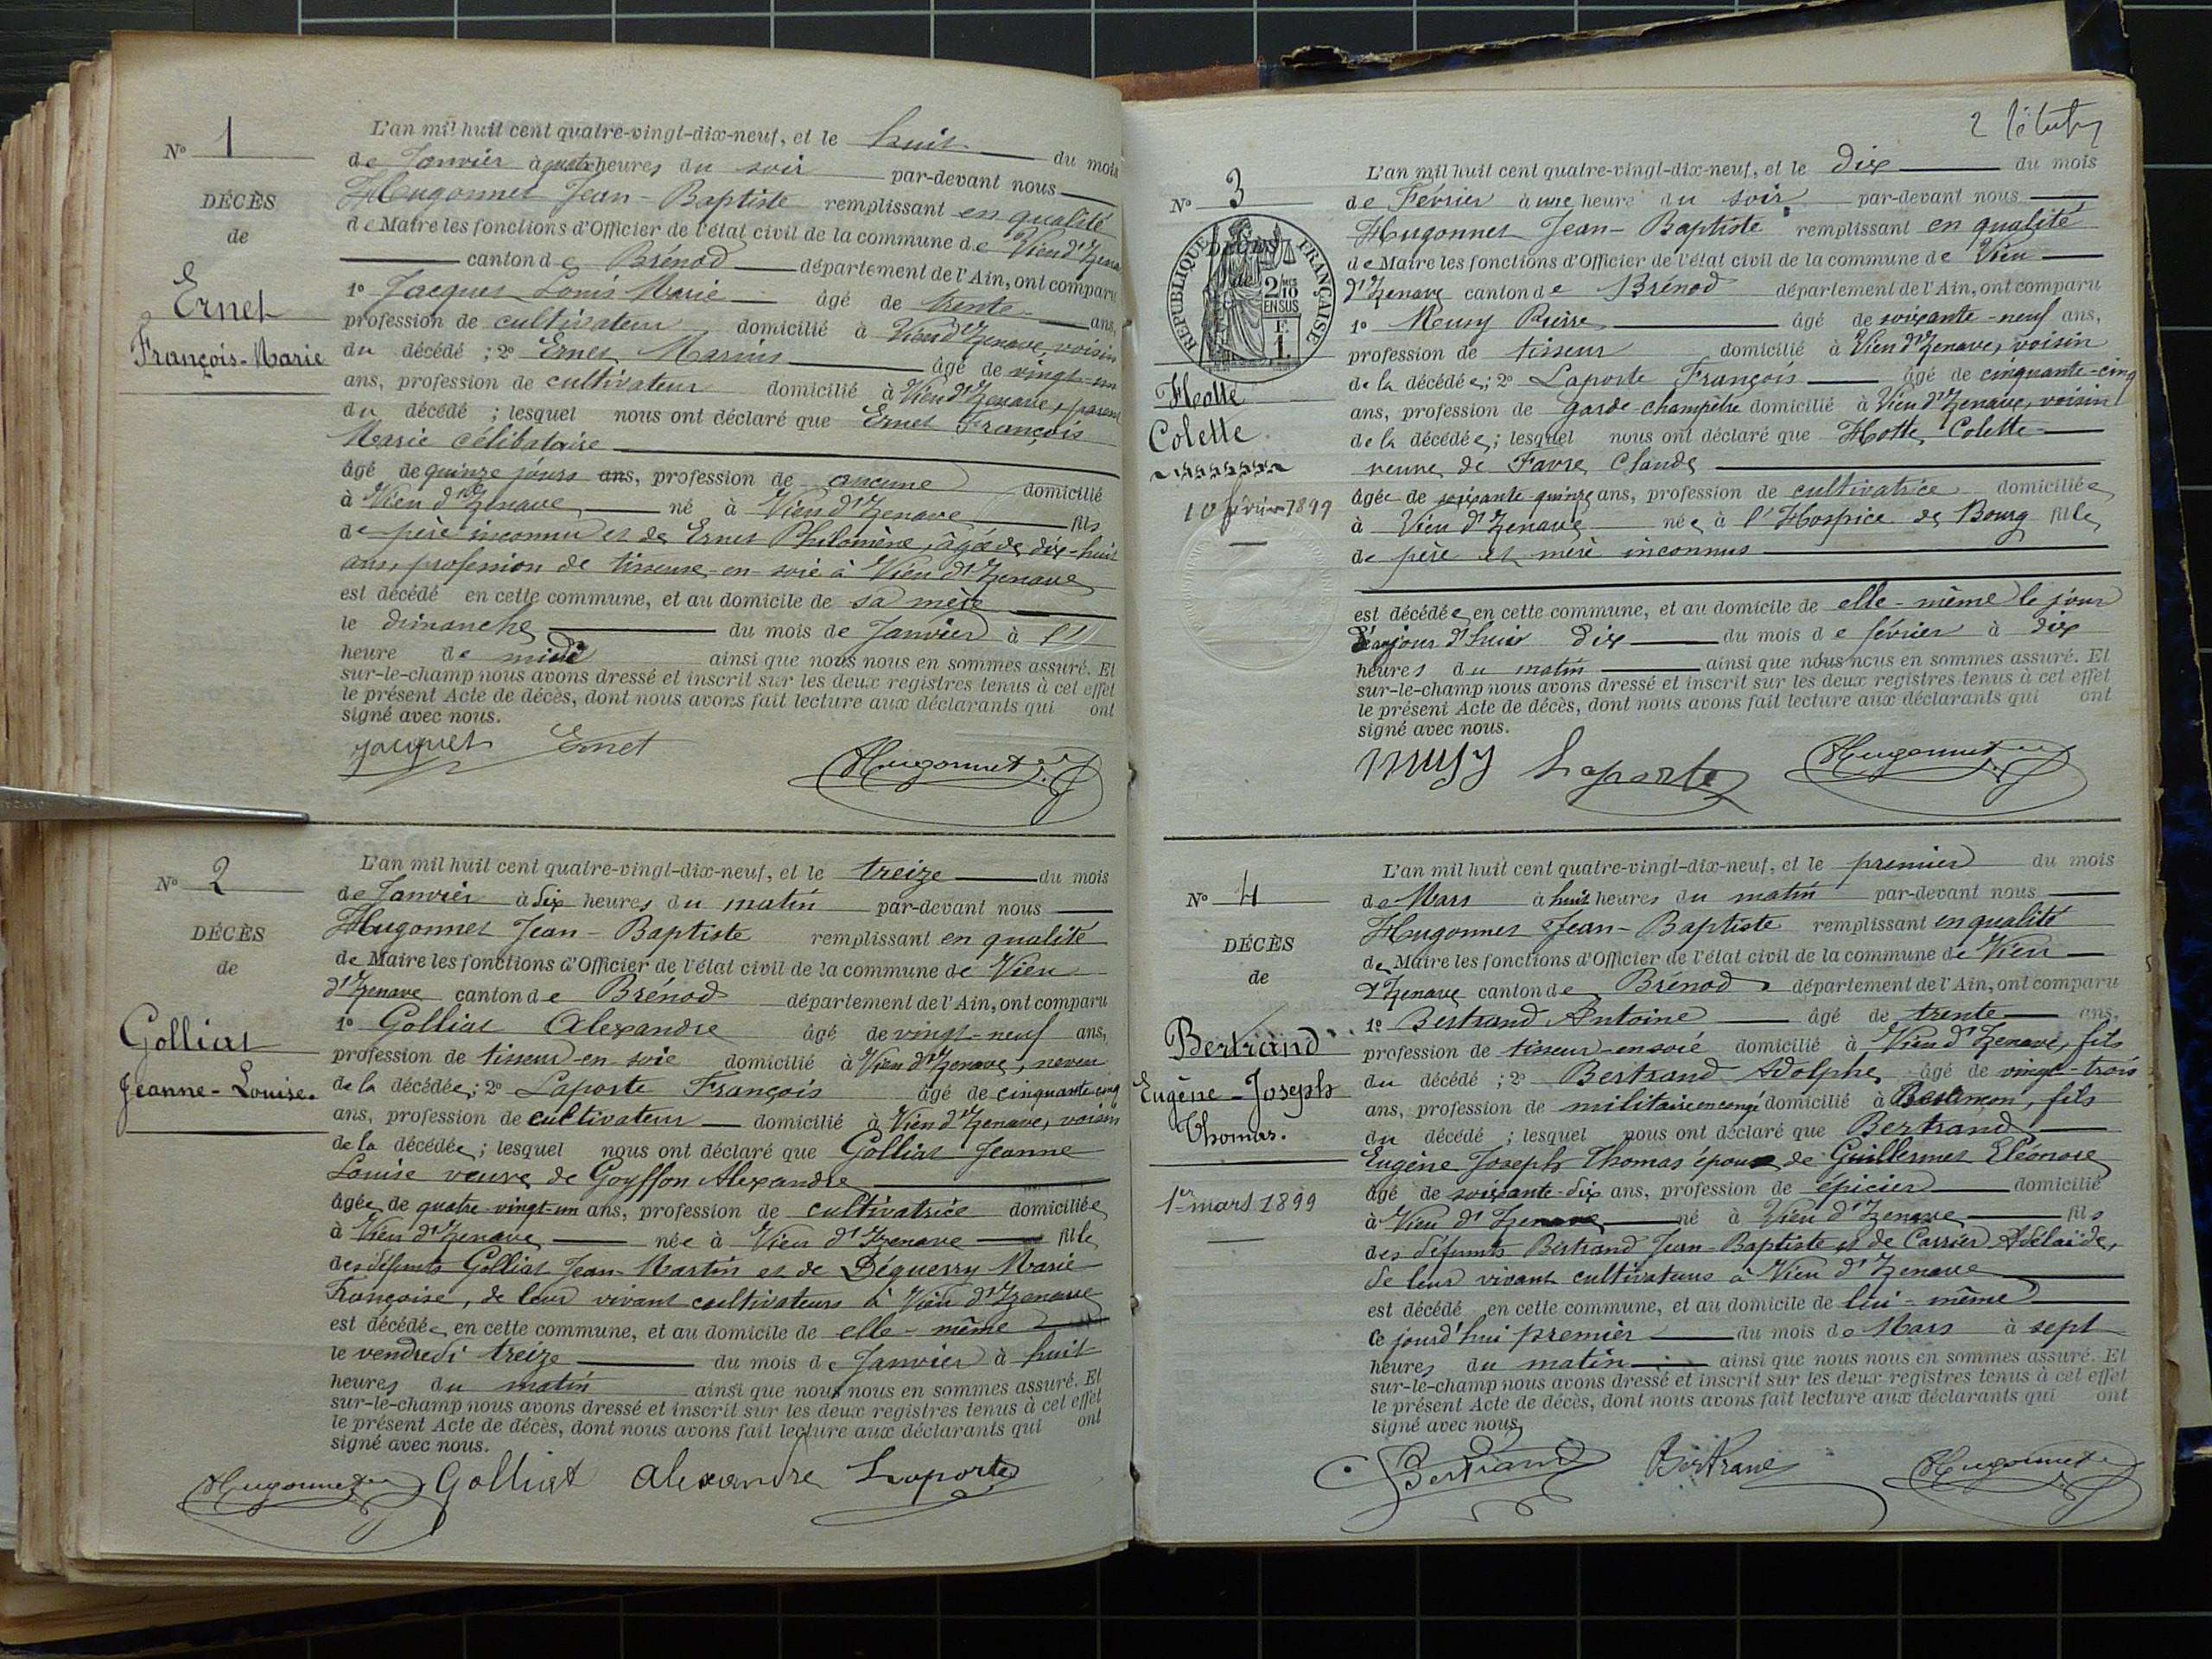 N° 1
DÉCÈS
de
Ernet
François-Marie
L'an mil huit cent quatre-vingt-dix-neuf, et le huit du mois
de Janvier à quatre heures du soir par-devant nous
Hugonnet Jean-Baptiste remplissant en qualité
de Maire les fonctions d'Officier de l'état civil de la commune de Vieu d'Izenave
canton de Brénod département de l'Ain, ont comparu
1° Jacquet Louis Marie âgé de trente ans,
profession de cultivateur domicilié à Vieu d'Izenave, voisin
du décédé ; 2° Ernet Marius âgé de vingt-un
ans, profession de cultivateur domicilié à Vieu d'Izenave, parent
du décédé ; lesquel nous ont déclaré que Ernet François
Marie célibataire
âgé de quinze jours ans, profession de aucune domicilié
à Vieu d'Izenave né à Vieu d'Izenave fils
de père inconnu et de Ernet Philomène, âgée de dix-huit
ans, profession de tisseuse-en-soie à Vieu d'Izenave
est décédé en cette commune, et au domicile de sa mère
le dimanche du mois de Janvier à
heure de midi ainsi que nous nous en sommes assuré. Et
sur-le-champ nous avons dressé et inscrit sur les deux registres tenus à cet effet
le présent Acte de décès, dont nous avons fait lecture aux déclarants qui ont
signé avec nous.
Jacquet Ernet Hugonnet
N° 2
DÉCÈS
de
Golliat
Jeanne-Louise.
L'an mil huit cent quatre-vingt-dix-neuf, et le treize du mois
de Janvier à dix heures du matin par-devant nous
Hugonnet Jean-Baptiste remplissant en qualité
de Maire les fonctions d'Officier de l'état civil de la commune de Vieu
d'Izenave canton de Brénod département de l'Ain, ont comparu
1° Golliat Alexandre âgé de vingt-neuf ans,
profession de tisseur-en-soie domicilié à Vieu d'Izenave, neveu
de la décédée ; 2° Laporte François âgé de cinquante-cinq
ans, profession de cultivateur domicilié à Vieu d'Izenave, voisin
de la décédée ; lesquel nous ont déclaré que Golliat Jeanne
Louise veuve de Goyffon Alexandre
âgée de quatre-vingt-un ans, profession de cultivatrice domiciliée
à Vieu d'Izenave née à Vieu d'Izenave fille
des défunts Golliat Jean-Martin et de Déguerry Marie
Françoise, de leur vivant cultivateurs à Vieu d'Izenave
est décédée en cette commune, et au domicile de elle-même
le vendredi treize du mois de Janvier à huit
heures du matin ainsi que nous nous en sommes assuré. Et
sur-le-champ nous avons dressé et inscrit sur les deux registres tenus à cet effet
le présent Acte de décès, dont nous avons fait lecture aux déclarants qui ont
signé avec nous.
Hugonnet Golliat Alexandre Laporte
2
N° 3
DÉCÈS
de
RÉPUBLIQUE FRANÇAISE
2 MES
10
EN SUS
1 F
Hotte
Colette
10 février 1899
L'an mil huit cent quatre-vingt-dix-neuf, et le dix du mois
de Février à une heure du soir par-devant nous
Hugonnet Jean-Baptiste remplissant en qualité
de Maire les fonctions d'Officier de l'état civil de la commune de Vieu
d'Izenave canton de Brénod département de l'Ain, ont comparu
1° Meusy Pierre âgé de soixante-neuf ans,
profession de tisseur domicilié à Vieu d'Izenave, voisin
de la décédée ; 2° Laporte François âgé de cinquante-cinq
ans, profession de garde-champêtre domicilié à Vieu d'Izenave, voisin
de la décédée ; lesquel nous ont déclaré que Hotte Colette
veuve de Favre Claude
âgée de soixante-quinze ans, profession de cultivatrice domiciliée
à Vieu d'Izenave née à l'Hospice de Bourg fille
de père et mère inconnus
est décédée en cette commune, et au domicile de elle-même le jour
d'aujourd'hui dix du mois de février à dix
heures du matin ainsi que nous nous en sommes assuré. Et
sur-le-champ nous avons dressé et inscrit sur les deux registres tenus à cet effet
le présent Acte de décès, dont nous avons fait lecture aux déclarants qui ont
signé avec nous.
musy Laporte Hugonnet
N° 4
DÉCÈS
de
Bertrand
Eugène-Joseph
Thomas.
1er mars 1899
L'an mil huit cent quatre-vingt-dix-neuf, et le premier du mois
de Mars à huit heures du matin par-devant nous
Hugonnet Jean-Baptiste remplissant en qualité
de Maire les fonctions d'Officier de l'état civil de la commune de Vieu
d'Izenave canton de Brénod département de l'Ain, ont comparu
1° Bertrand Antoine âgé de trente ans,
profession de tisseur-en-soie domicilié à Vieu d'Izenave, fils
du décédé ; 2° Bertrand Adolphe âgé de vingt-trois
ans, profession de militaire en congé domicilié à Besançon, fils
du décédé ; lesquel nous ont déclaré que Bertrand
Eugène Joseph Thomas époux de Guillermet Eléonore
âgé de soixante-dix ans, profession de épicier domicilié
à Vieu d'Izenave né à Vieu d'Izenave fils
des défunts Bertrand Jean-Baptiste et de Carrier Adélaïde,
de leur vivant cultivateurs à Vieu d'Izenave
est décédé en cette commune, et au domicile de lui-même
ce jourd'hui premier du mois de Mars à sept
heures du matin ainsi que nous nous en sommes assuré. Et
sur-le-champ nous avons dressé et inscrit sur les deux registres tenus à cet effet
le présent Acte de décès, dont nous avons fait lecture aux déclarants qui ont
signé avec nous
Bertrand Bertrand Hugonnet